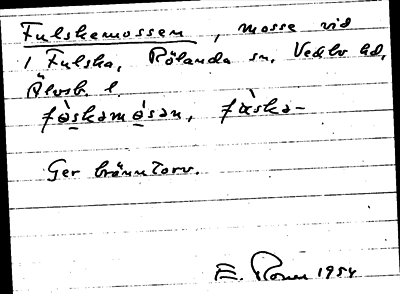 Fulskemossen, mosse vid
1 Fulska, Rölanda sn, Vedbo hd,
Älvsb. l.
fə̀skamə́san, fùska-
Ger bränntorv.
E. Rosen 1954